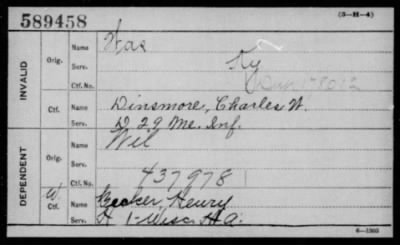 589458
(3-H-4)
INVALID
Orig.
Name Has
Serv. Ky
Ctf. No.
Ctf.
Name Dinsmore, Charles W.
Serv. D 29 Me. Inf.
DEPENDENT
Orig.
Name Wil
Serv.
Ctf. No. 437978
W
Ctf.
Name Becker, Henry
Serv. H 1 Wisc. H. A.
6-1303